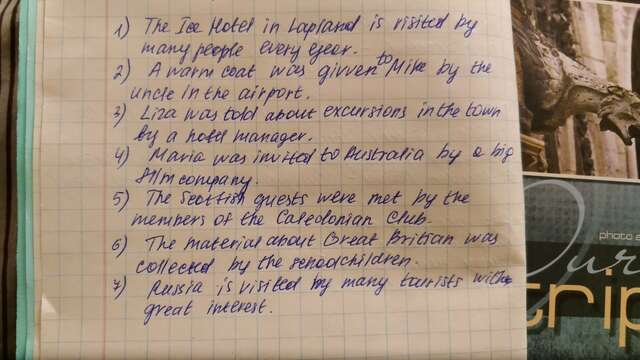 1) The Ice Hotel in Lapland is visited by
many people every year.
2) A warm coat was givven to Mike by the
uncle in the airport.
3) Liza was told about excursions in the town
by a hotel manager.
4) Maria was invited to Australia by a big
film company.
5) The Scottish guests were met by the
members of the Caledonian Club.
6) The material about Great Britian was
collected by the schoolchildren.
7) Russia is visited by many tourists with
great interest.
photo
Our
trip